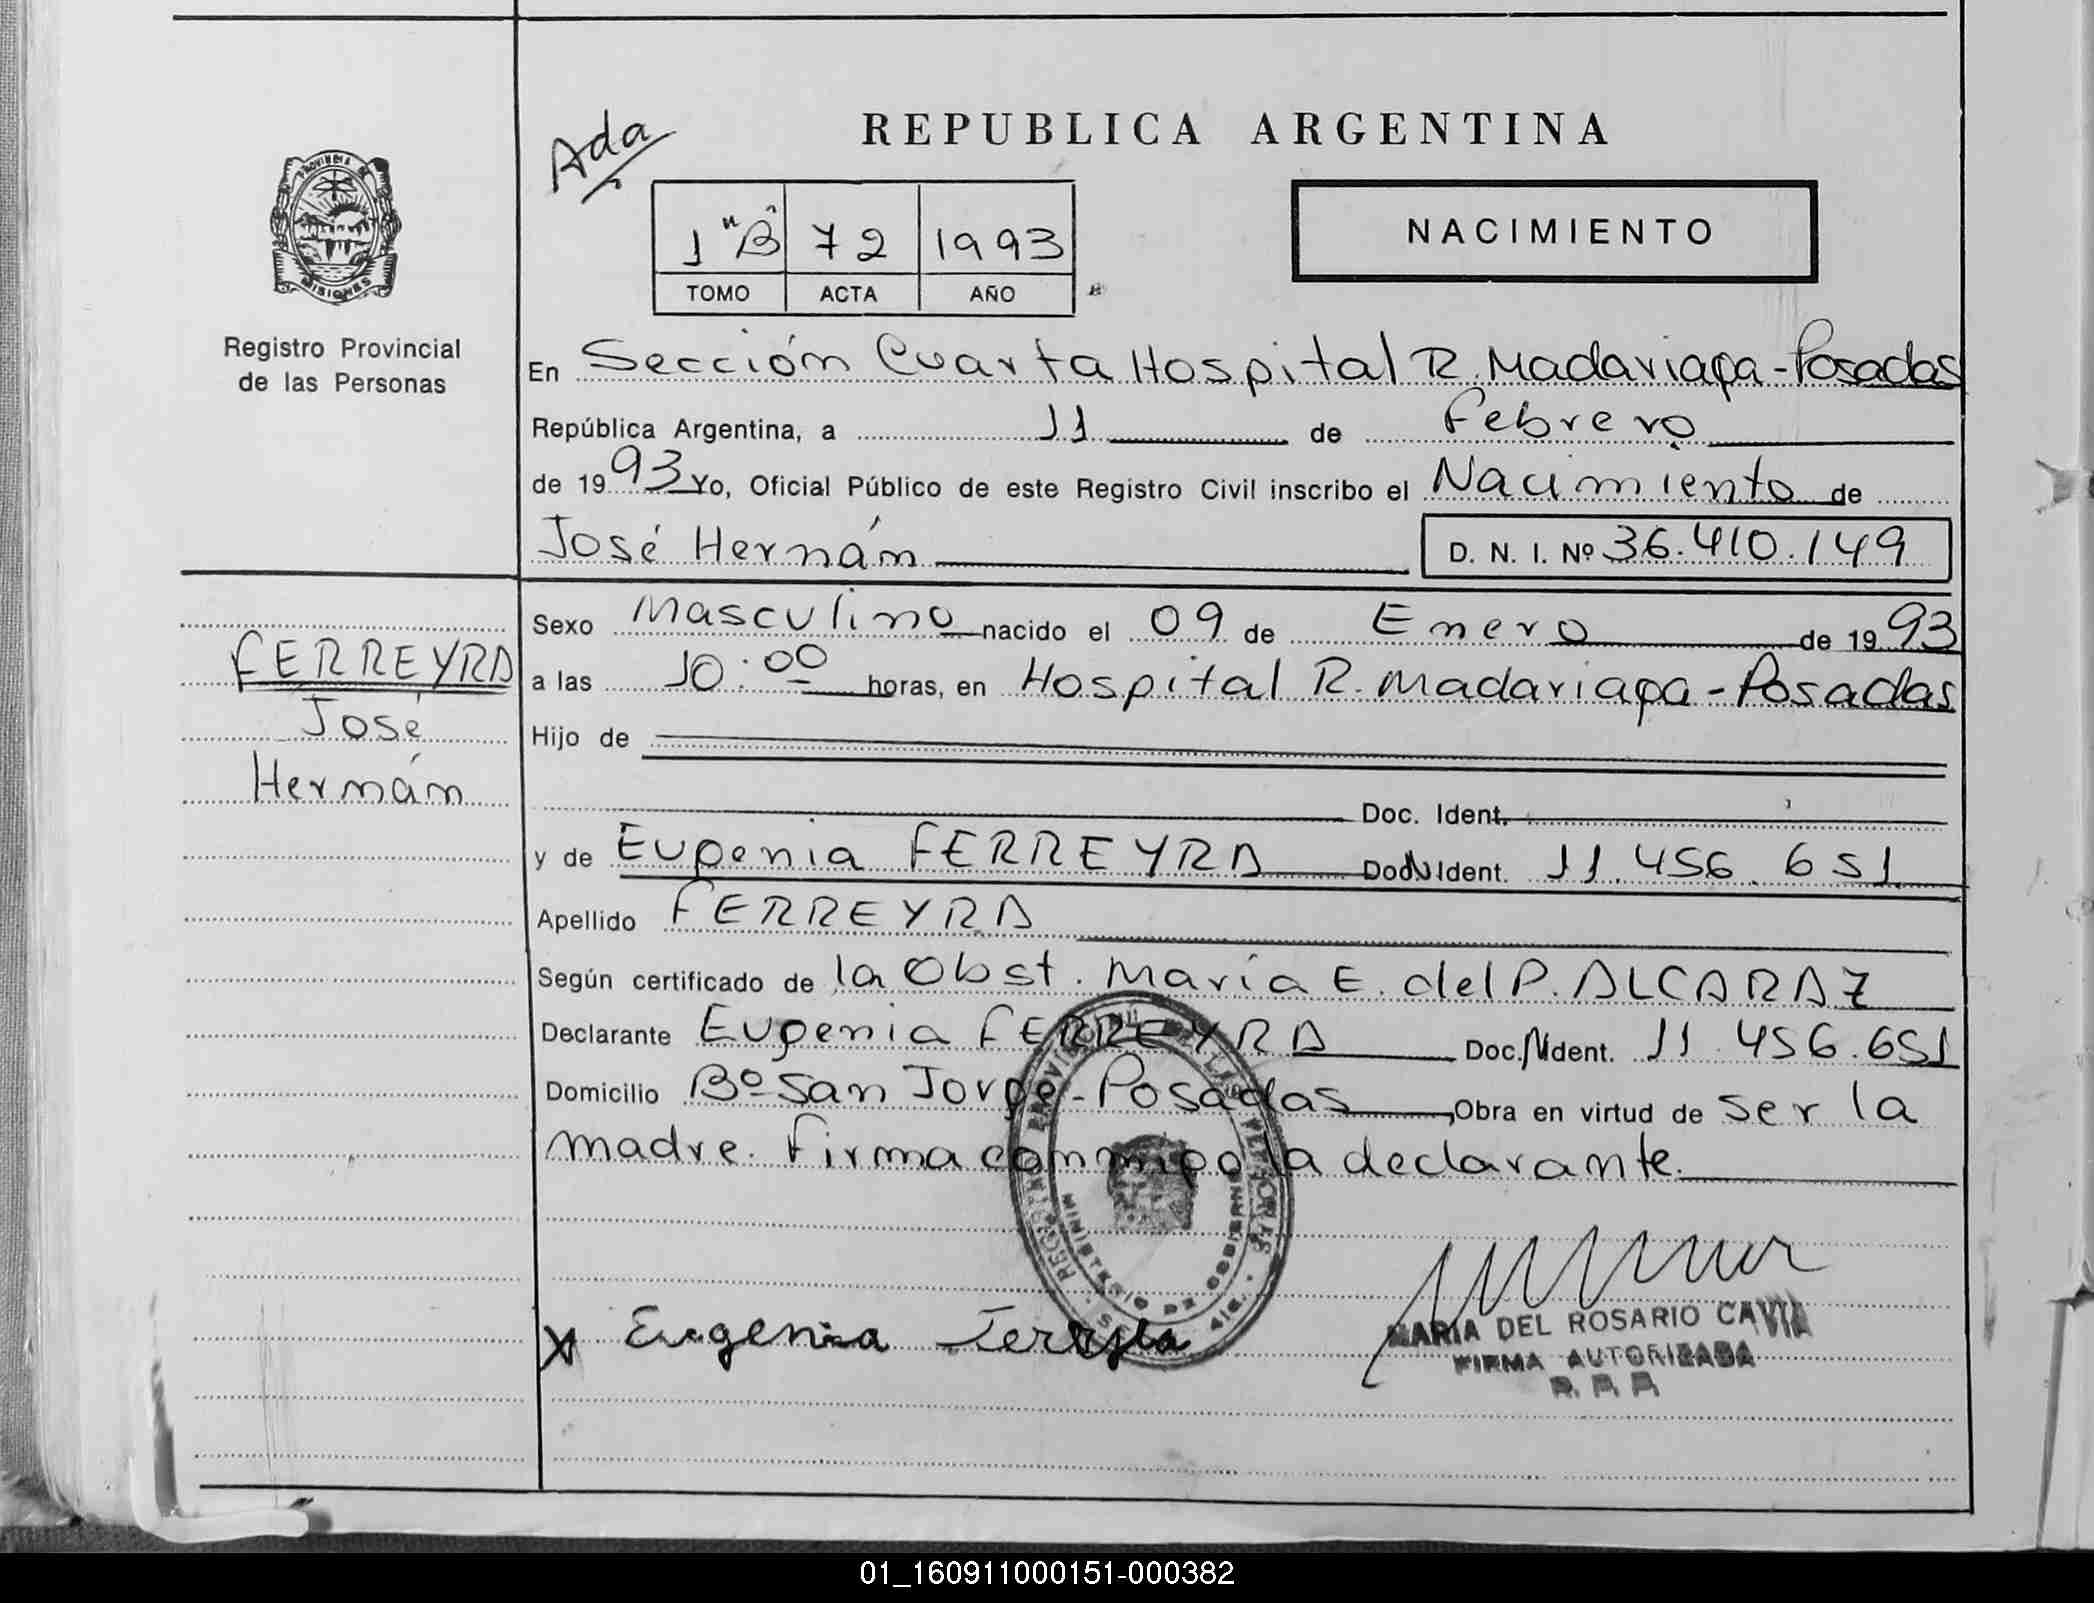 REPUBLICA ARGENTINA
Ada
PROVINCIA DE
MISIONES
Registro Provincial
de las Personas
1 "B" 72 1993
TOMO ACTA AÑO
NACIMIENTO
En Sección Cuarta Hospital R. Madariaga - Posadas
República Argentina, a 11 de Febrero
de 1993 Yo, Oficial Público de este Registro Civil inscribo el Nacimiento de
José Hernán D. N. I. Nº 36.410.149
Sexo Masculino nacido el 09 de Enero de 1993
a las 10:00 horas, en Hospital R. Madariaga - Posadas
Hijo de
Doc. Ident.
y de Eugenia FERREYRA Doc. Ident. 11.456.651
Apellido FERREYRA
Según certificado de la Obst. María E. del P. ALCARAZ
Declarante Eugenia FERREYRA Doc. Ident. 11.456.651
Domicilio Bº San Jorge - Posadas, Obra en virtud de ser la
madre. Firma conmigo la declarante.
FERREYRA
José
Hernán
REGISTRO PROVINCIAL DE LAS PERSONAS
MINISTERIO DE GOBIERNO
X Eugenia Ferreyra
MARIA DEL ROSARIO CAVIA
FIRMA AUTORIZADA
R. P. P.
01_160911000151-000382